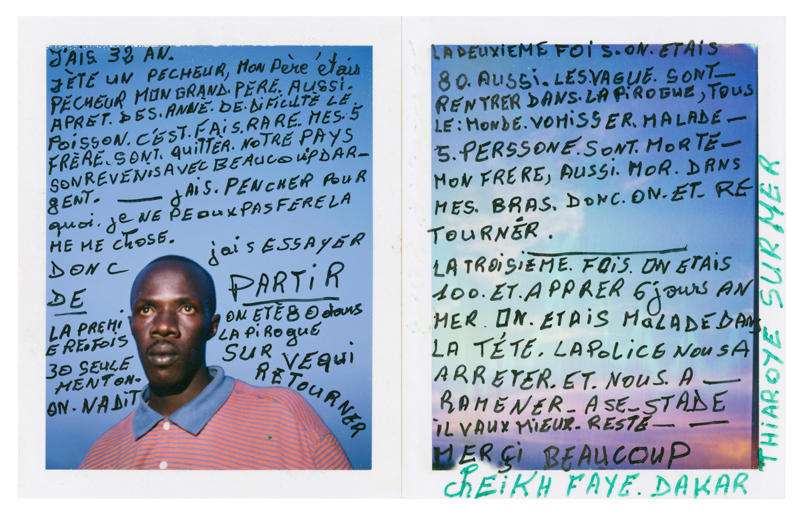 J'AIS 32 AN.
JÈTÉ UN PECHEUR, MON PÈRE étais
PÉCHEUR MON GRAND. PÉRE. AUSSI.
APRET. DES. ANNE. DE. DIFICULTÉ LE
POISSON. C'EST. FAIS. RARE. MES. 5
FRÉRE. SONT. QUITTER. NOTRE PAYS
SON REVENIS AVEC BEAUCOUP DAR—
GENT. — JAIS. PENCHER POUR
quoi. je NE PEOUX PAS FERE LA
ME ME CHOSE. jais ESSAYER
DONC
DE PARTIR
LA PREMI
ERE. FOIS
30 SEULE
MENT ON.
ON. NADIT
ON ETÉ 80 dans
LA PIROGUE
SUR VEQUI
RETOURNER
LA DEUXIEME FOIS. ON. ETAIS
80. AUSSI. LES VAGUE. SONT—
RENTRER DANS. LA PIROGUE, TOUS
LE: MONDE. VOMISSER. MALADE—
5. PERSSONE. SONT. MORTE—
MON FRERE, AUSSI. MOR. DANS
MES. BRAS. DONC. ON. ET. RE
TOURNÉR.
LA TROISIEME. FOIS. ON ETAIS
100. ET. APPRER 6 jours AN
MER. ON. ETAIS MALADE DANS
LA TÉTE. LA POLICE NOUS A
ARRETER. ET. NOUS. A —
RAMENER_ A SE_ STADE
iL VAUX MiEUR. RESTE— —
MERÇi BEAUCOUP
CHEiKH FAYE. DAKAR
THIAROYE SUR MER